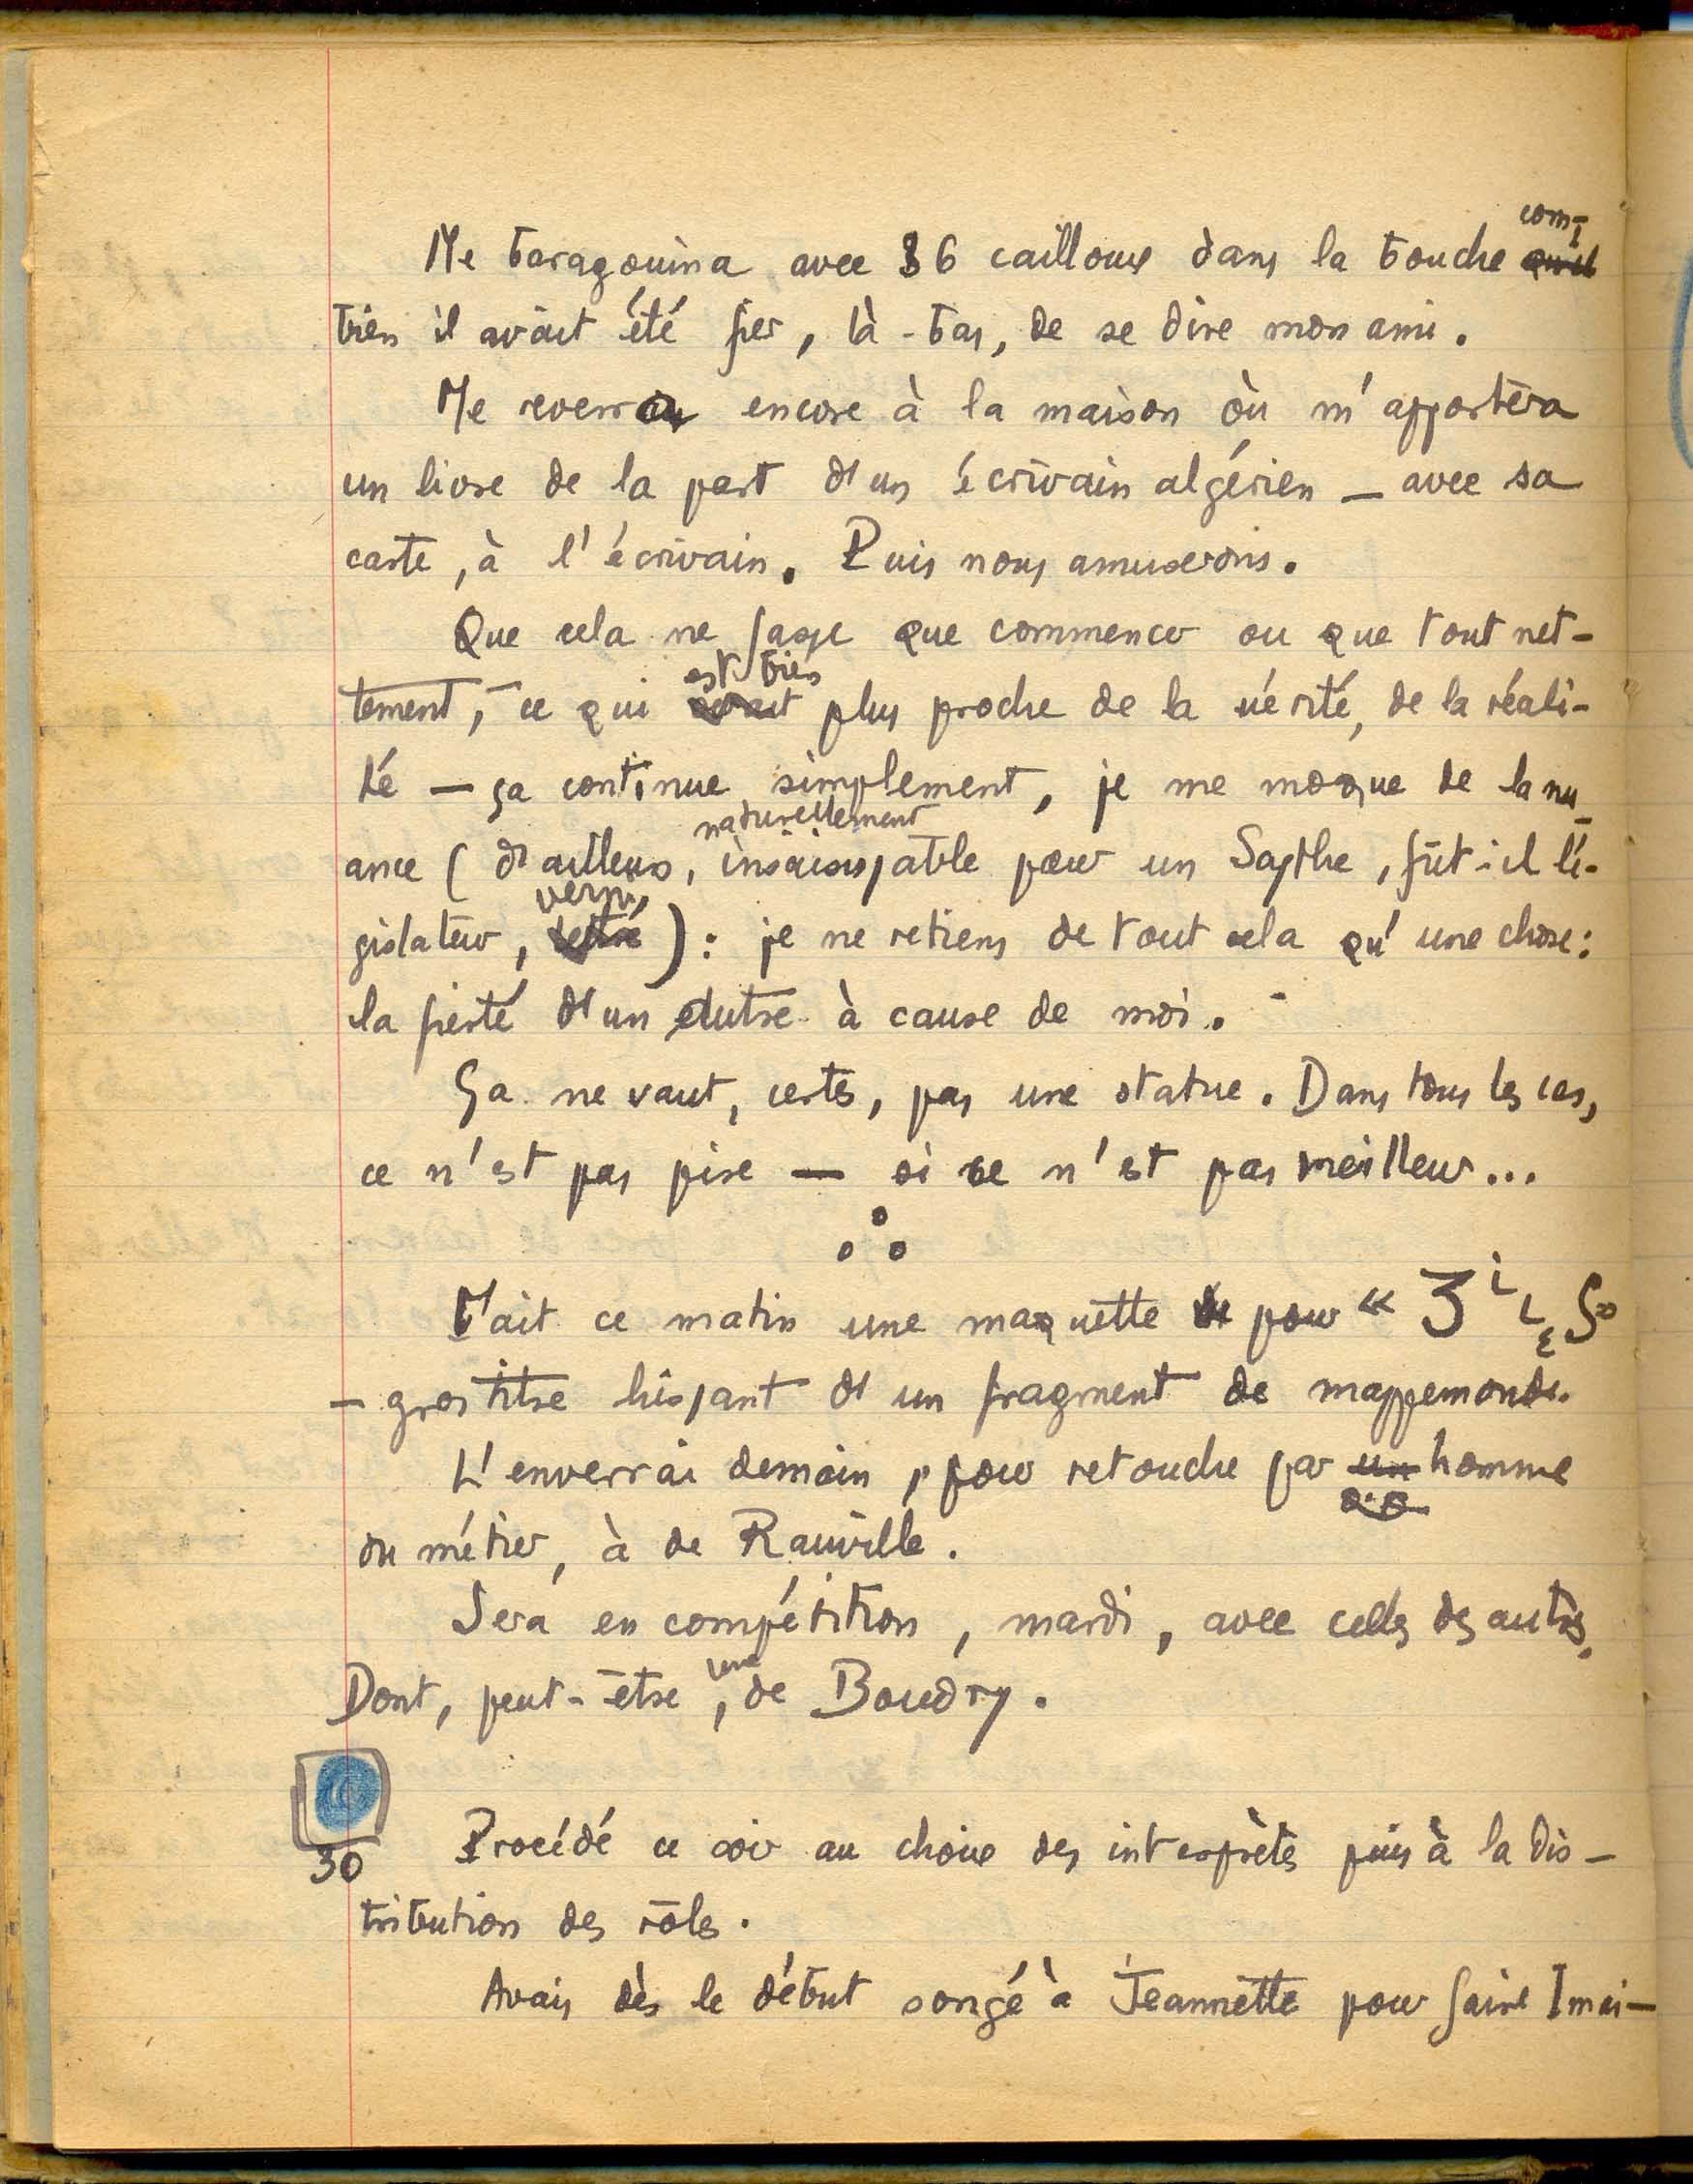 Me baragouina, avec 36 cailloux dans la bouche com-
bien il avait été fier, là-bas, de se dire mon ami.
Me reverra encore à la maison où m'apportera
un livre de la part d'un écrivain algérien — avec sa
carte, à l'écrivain. Puis nous amuserons.
Que cela ne fasse que commencer ou que tout net-
tement, — ce qui est bien plus proche de la vérité, de la réali-
té — ça continue simplement, je me moque de la nu-
ance (d'ailleurs, naturellement insaisissable pour un Scythe, fût-il lé-
gislateur, verni) : je ne retiens de tout cela qu'une chose :
la fierté d'un autre à cause de moi.
Ça ne vaut, certes, pas une statue. Dans tous les cas,
ce n'est pas pire — si ce n'est pas meilleur...
Fait ce matin une maquette pour «
— gros titre hissant d'un fragment de mappemonde.
L'enverrai demain, pour retouche par homme
du métier, à de Rauville.
Sera en compétition, mardi, avec celles des autres.
Dont, peut-être, une de Boudry.
30 Procédé ce soir au choix des interprètes puis à la dis-
tribution des rôles.
Avais dès le début songé à Jeannette pour faire Imai-